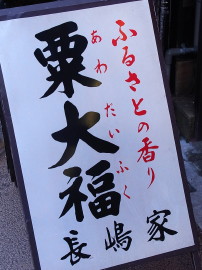 ふるさとの香り
粟大福
あわだいふく
長嶋家